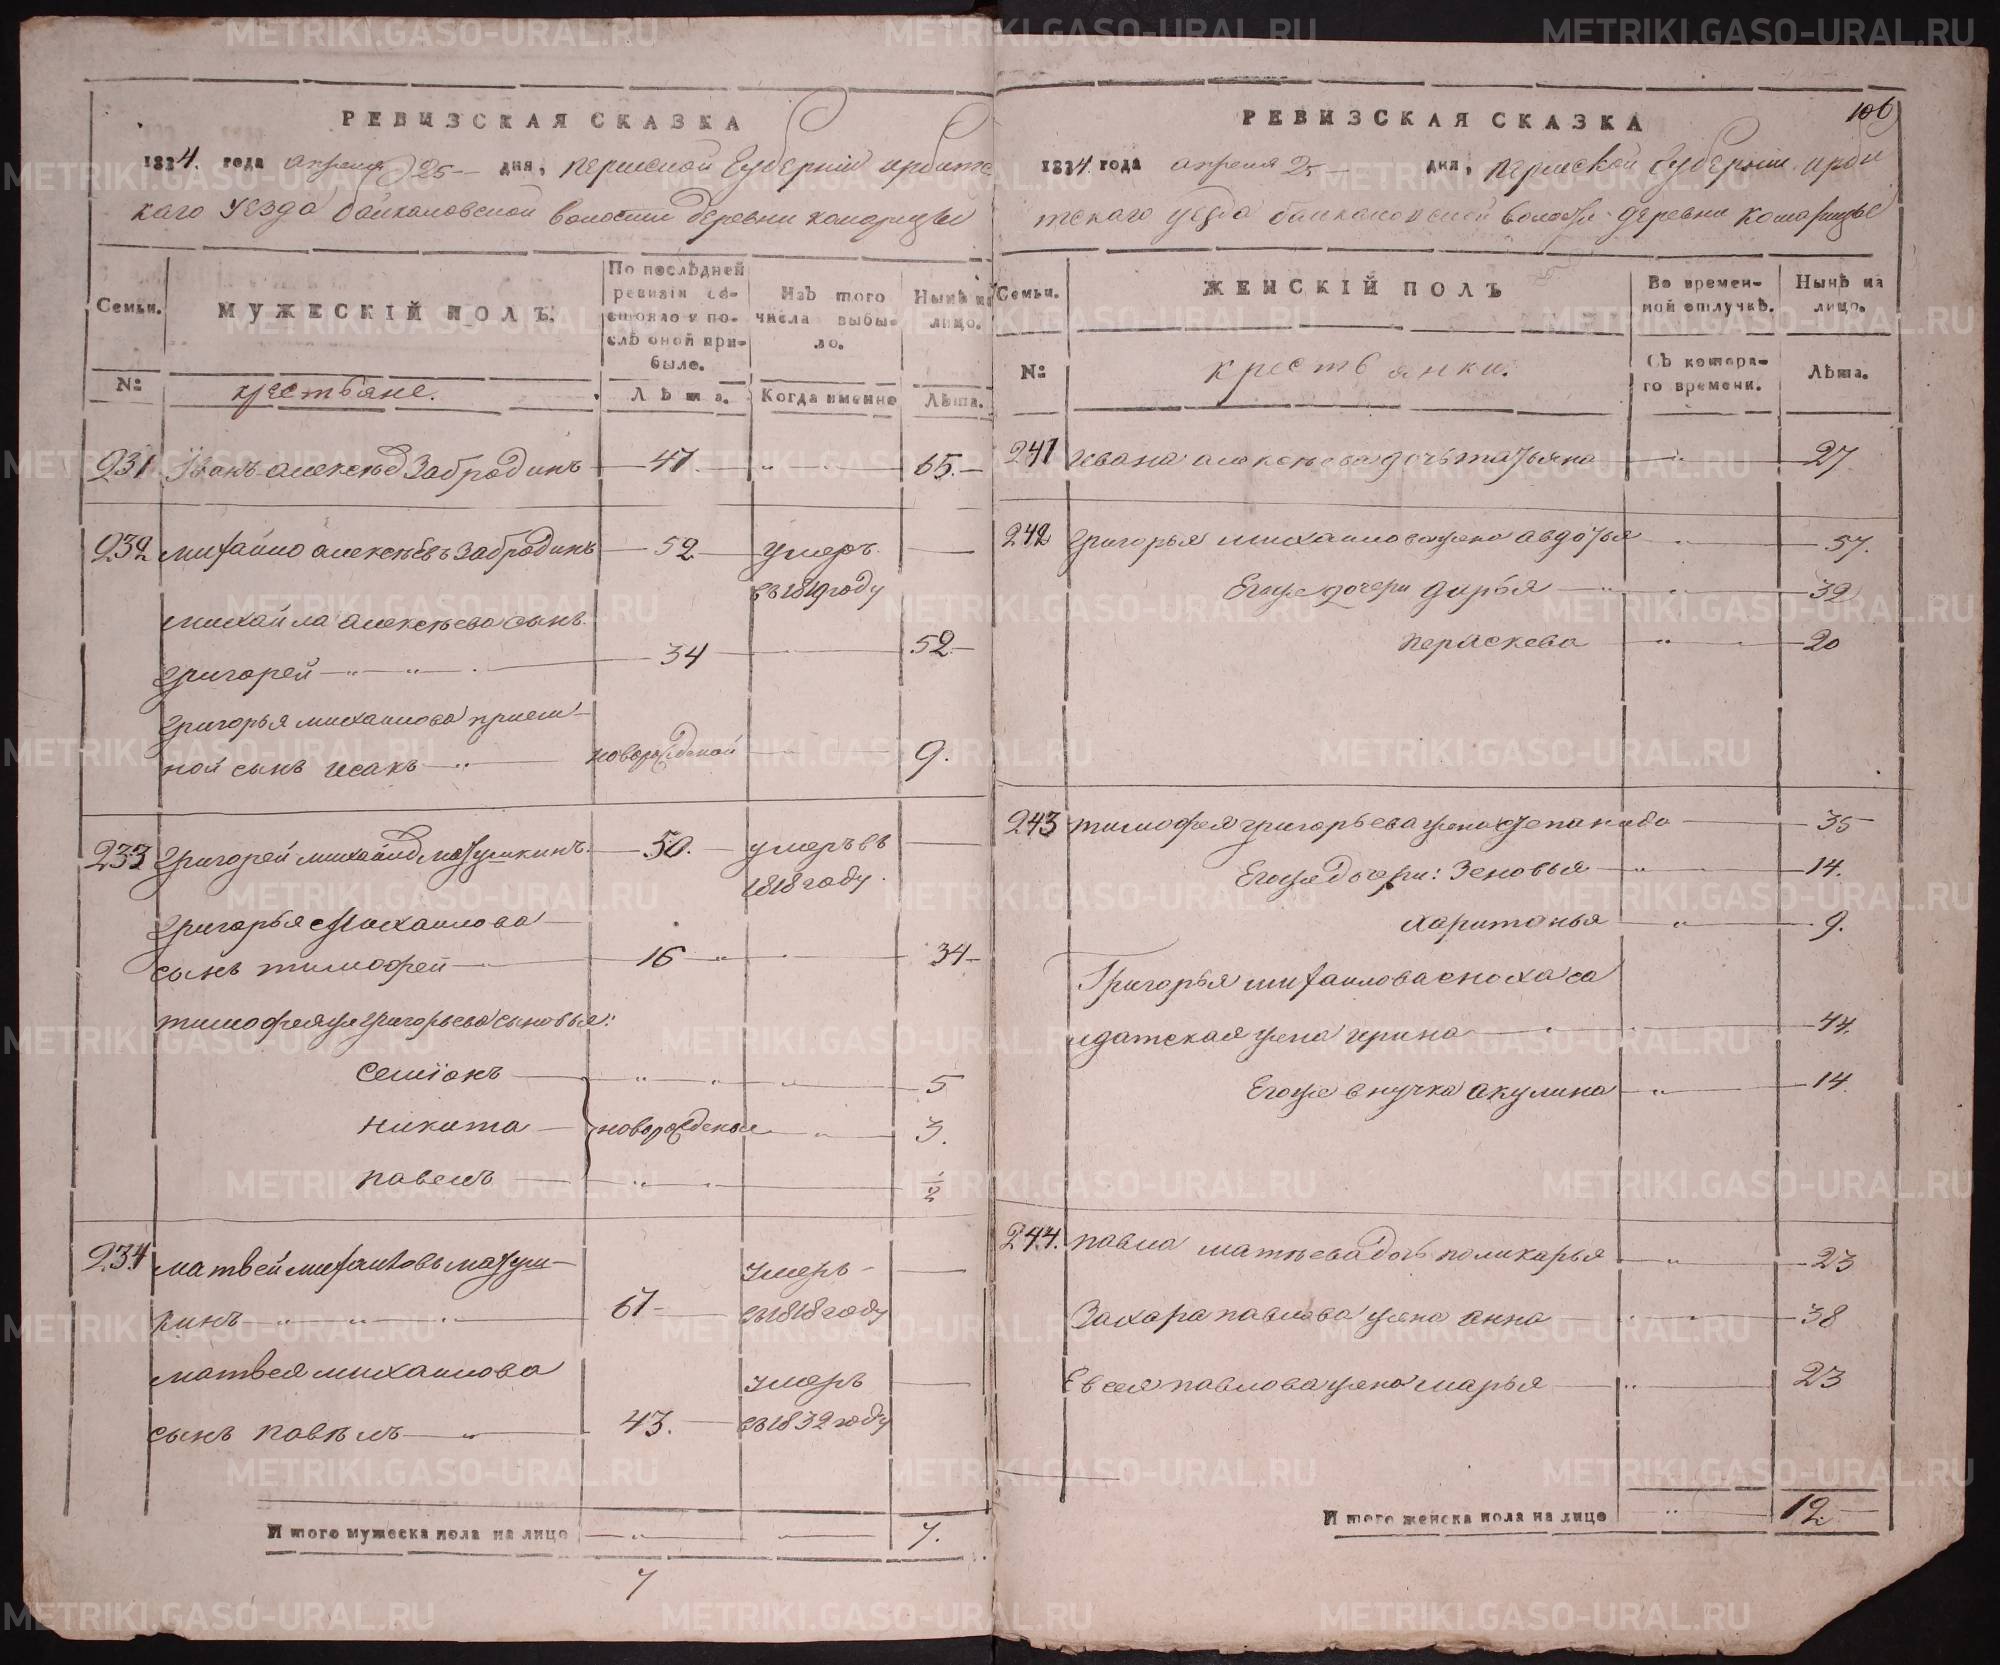 РЕВИЗСКАЯ СКАЗКА
1834. года апреля 25 дня, пермской Губернии ирбитс
каго уезда байкаловской волости деревни комарицы
Семьи.
МУЖЕСКІЙ ПОЛЪ.
По послѣдней ревизіи со-
стояло и по-
слѣ оной при-
было.
Изъ того
числа выбы-
ло.
Нынѣ на
лицо.
№:
крестьяне.
Лѣта.
Когда именно
Лѣта.
231 Иванъ алексѣев Забродинъ 47. 65.
232 михайло алексѣевъ Забродинъ 52 умеръ
въ 1819 году
михайла алексѣева сынъ
григорей 34 52
григорья михаилова прием-
ной сынъ исакъ новорожденой 9.
233 григорей михайлов матушкинъ. 50. умеръ въ
1818 году.
григорья михаилова
сынъ тимофей 16 34
тимофея григорьева сыновья:
Семіонъ 5
никита новорожденые 3.
павелъ 1/2
234 матвей михаиловъ матуш-
кинъ 67 умеръ
въ 1818 году
матвея михаилова
сынъ павѣлъ 43. умеръ
въ 1832 году
Итого мужеска пола на лицо 7.
7
106
РЕВИЗСКАЯ СКАЗКА
1834. года апреля 25 дня, пермской Губернии ирби
тскаго уезда байкаловской волости деревни комарицы
Семьи.
ЖЕНСКІЙ ПОЛЪ
Во времен-
ной отлучкѣ.
Нынѣ на
лицо.
№:
крестьянки.
Съ котора-
го времени.
Лѣта.
241 ивана алексѣева дочь татьяна 27
242 григорья михаилова жена авдотья 57.
Егоже дочери дарья 32
пераскева 20
243 тимофея григорьева жена степанида 35
Егоже дочери: Зеновья 14.
харитонья 9.
Григорья михаилова сноха со
лдатская жена ирина 44.
Егоже внучка акулина 14.
244. павла матвеева дочь поликарья 23
Захара павлова жена анна 38
Евсея павлова жена марья 23
Итого женска пола на лицо 12.
METRIKI.GASO-URAL.RU